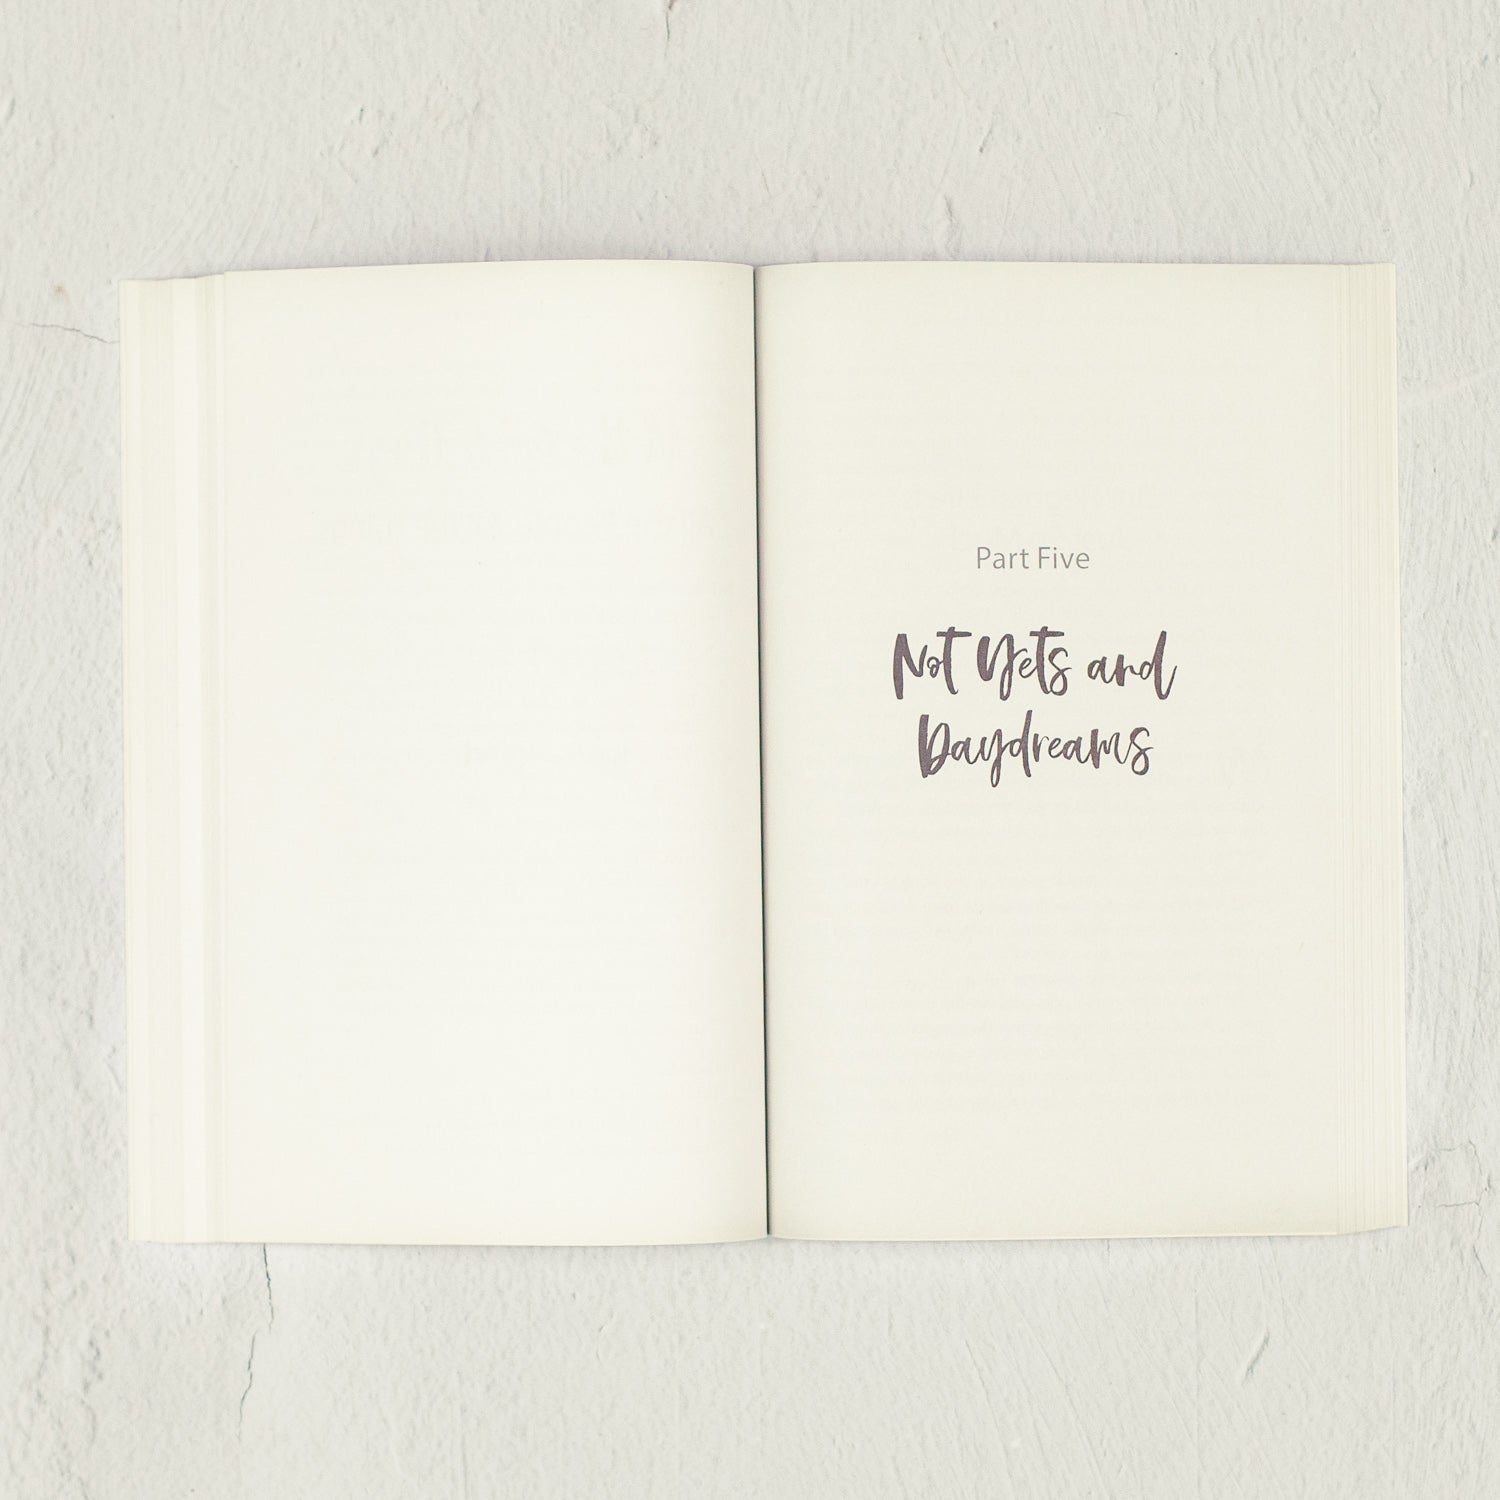 Part Five
Not Yets and
Daydreams